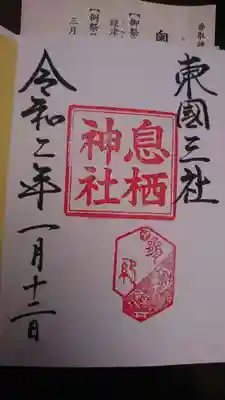 東國三社
息栖
神社
令和二年一月十二日
香取神
【御祭
経津
【例祭】
三月